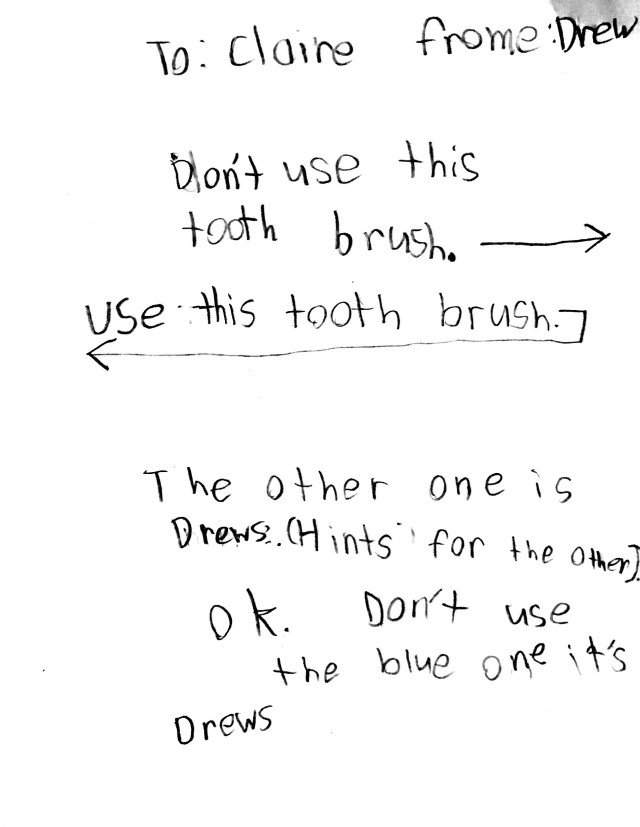 To: Claire frome: Drew
Don't use this
tooth brush. →
Use this tooth brush.
←
The other one is
Drews. (Hints for the other).
Ok. Don't use
the blue one it's
Drews